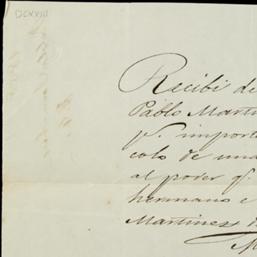 DCXXIII
Recibi de
Pablo Marti
pr. import
colo de una
al poder q.
hermano e
Martinez d
M